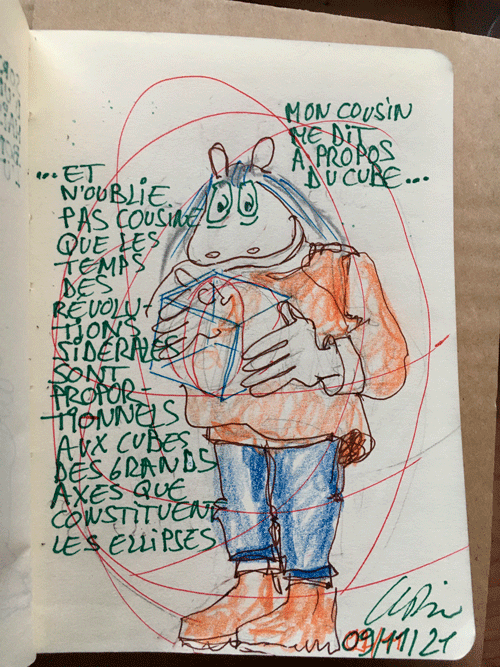 MON COUSIN
ME DIT
À PROPOS
DU CUBE...
... ET
N'OUBLIE
PAS COUSINE
QUE LES
TEMPS
DES
RÉVOLU-
TIONS
SIDÉRALES
SONT
PROPOR-
TIONNELS
AUX CUBES
DES GRANDS
AXES QUE
CONSTITUENT
LES ELLIPSES
09/11/21